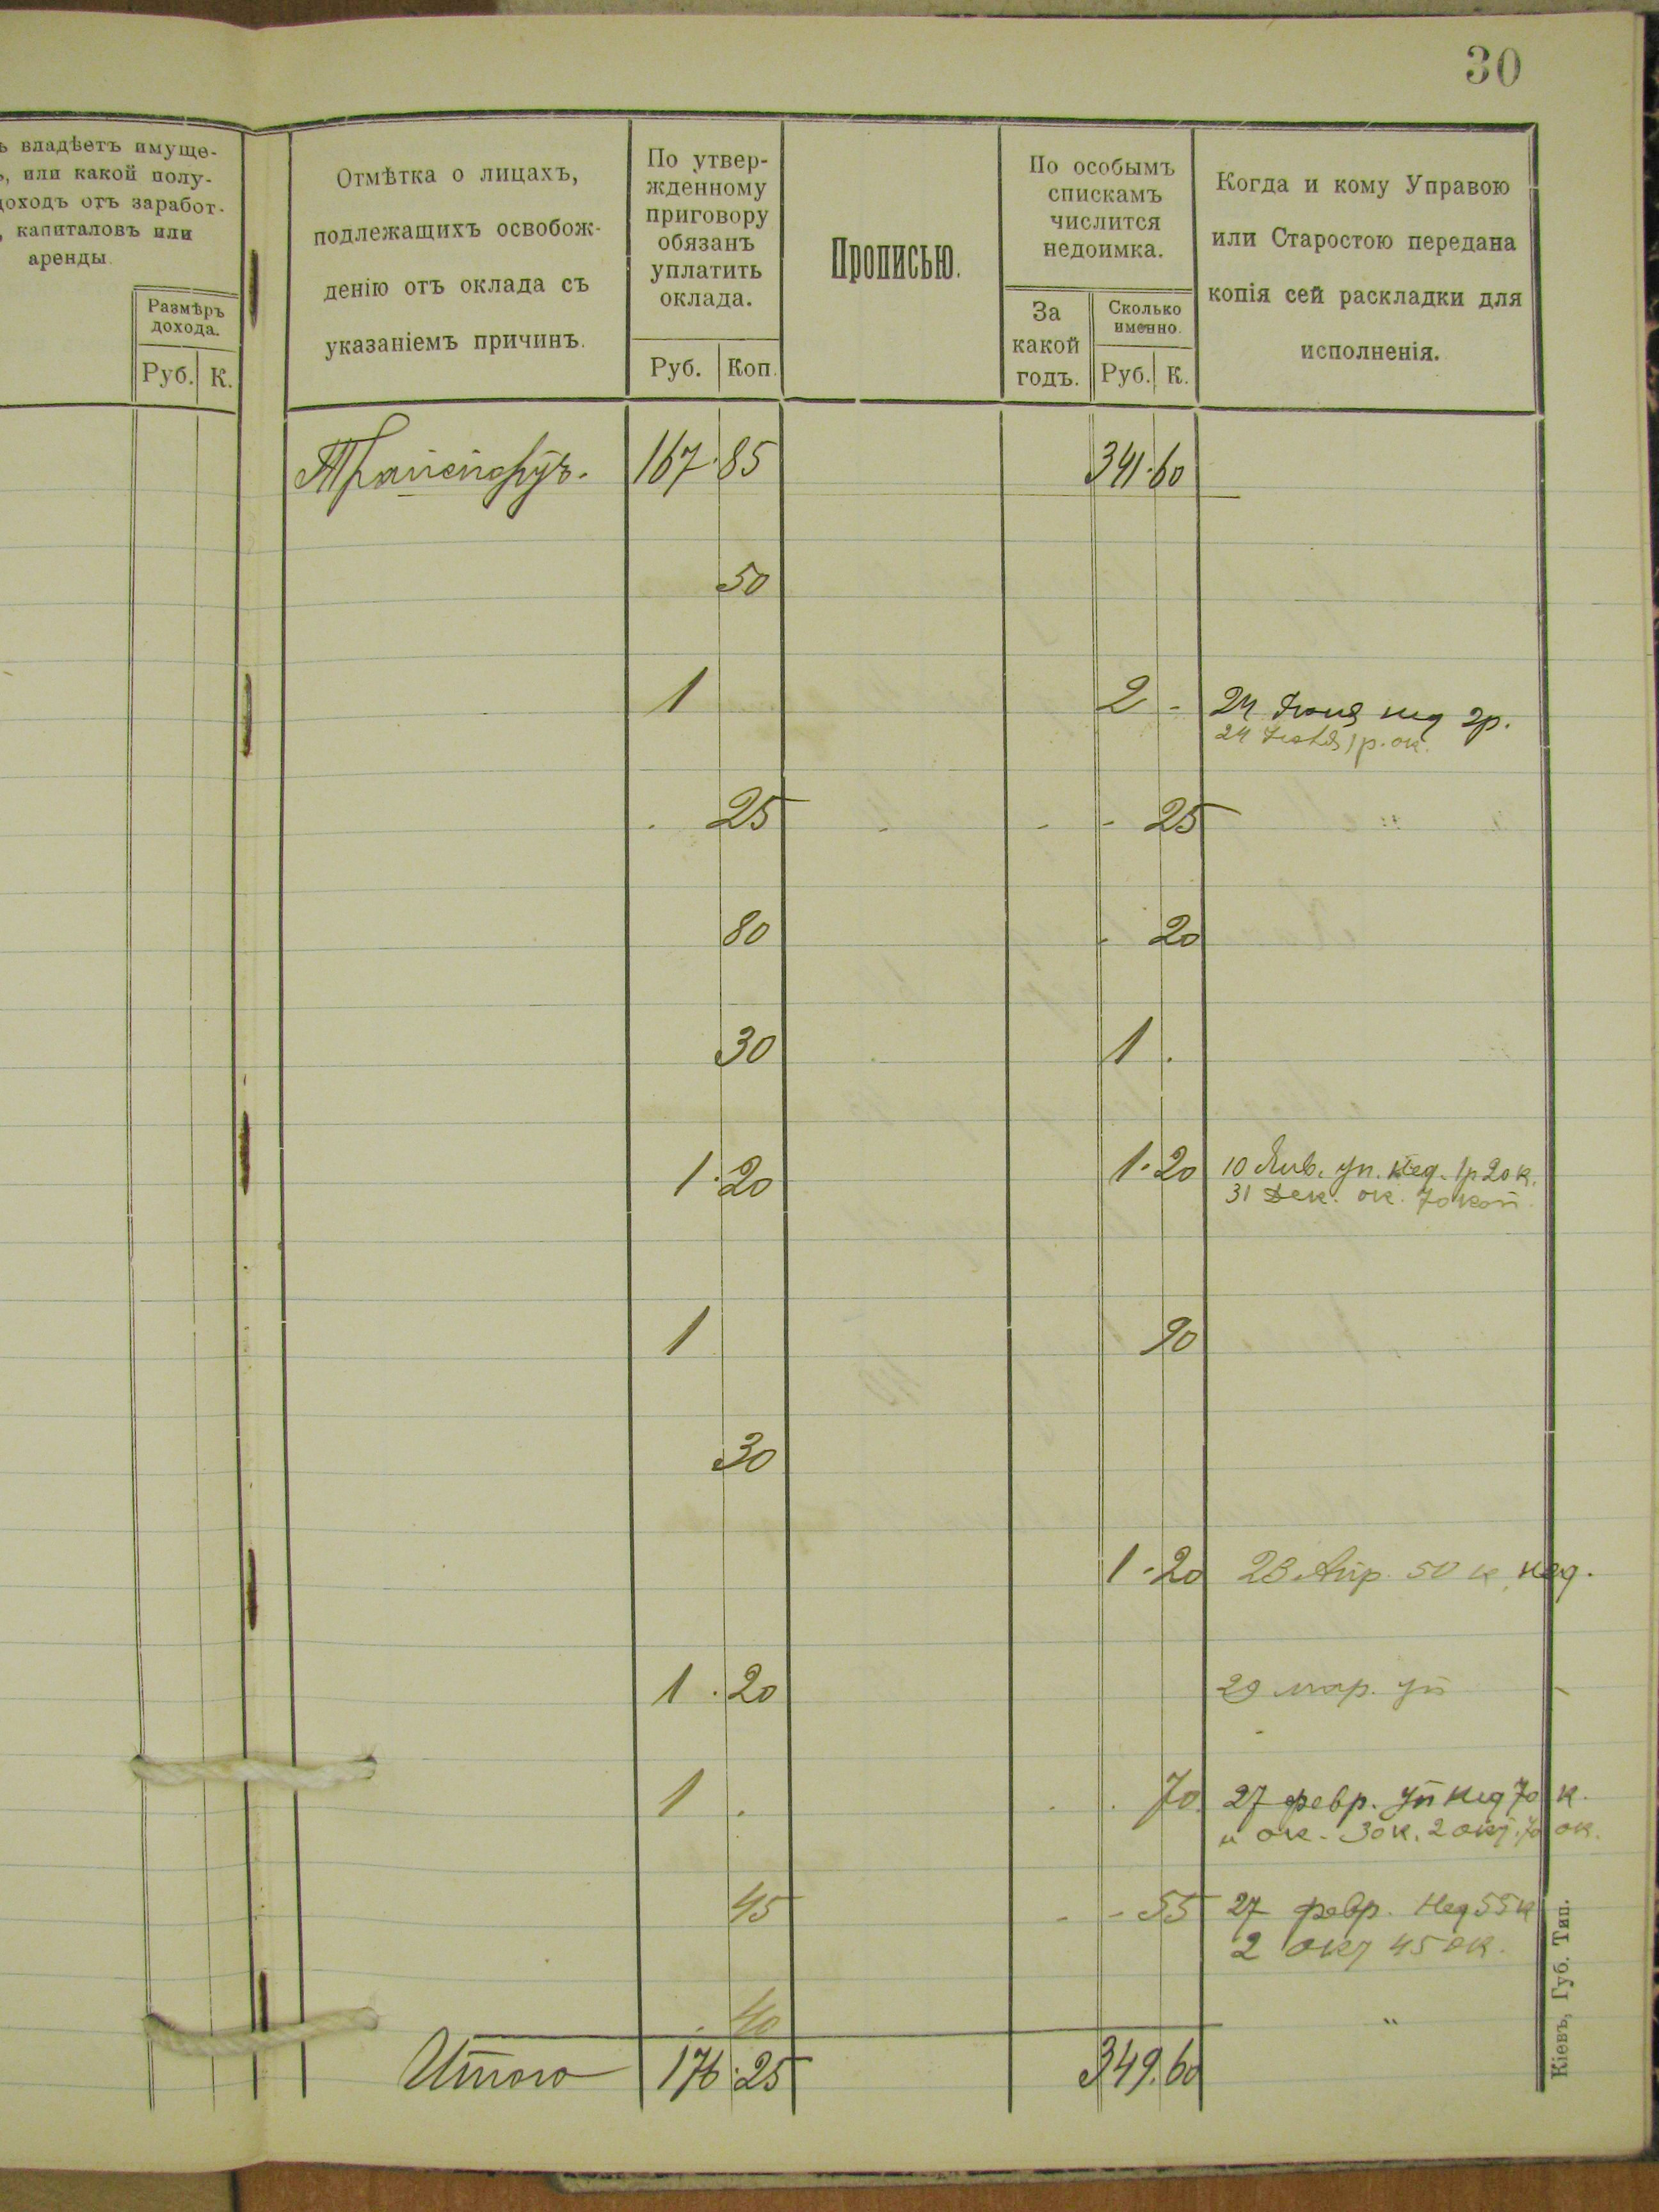 30
ъ владѣетъ имуще-
ъ, или какой полу-
доходъ отъ заработ-
, капиталовъ или
аренды.
Размѣръ
дохода.
Руб. К.
Отмѣтка о лицахъ,
подлежащихъ освобож-
денію отъ оклада съ
указаніемъ причинъ.
По утвер-
жденному
приговору
обязанъ
уплатить
оклада.
Руб. Коп.
Прописью.
По особымъ
спискамъ
числится
недоимка.
За
какой
годъ.
Сколько
именно.
Руб. К.
Когда и кому Управою
или Старостою передана
копія сей раскладки для
исполненія.
Транспортъ. 167.85 341.60
50
1 2 - 24 Іюня нед 2р.
24 1р. ок.
. 25 - - - 25
80 - 20
30 1 .
1.20 1.20 10 Янв. уп. нед. 1р 20к.
31 Дек. ок. 70 коп.
1 90
30
1-20 23 Апр. 50 к. нед.
1.20 29 мар. уп -
1 . . . 70. 27 февр. уп нед 70 к.
и ок. 30к. 2 окт. 70 ок.
45 - - 55 27 февр. Нед 55к
2 окт 45 ок.
. 40 "
Итого 176.25 349.60
Кіевъ, Губ. Тип.